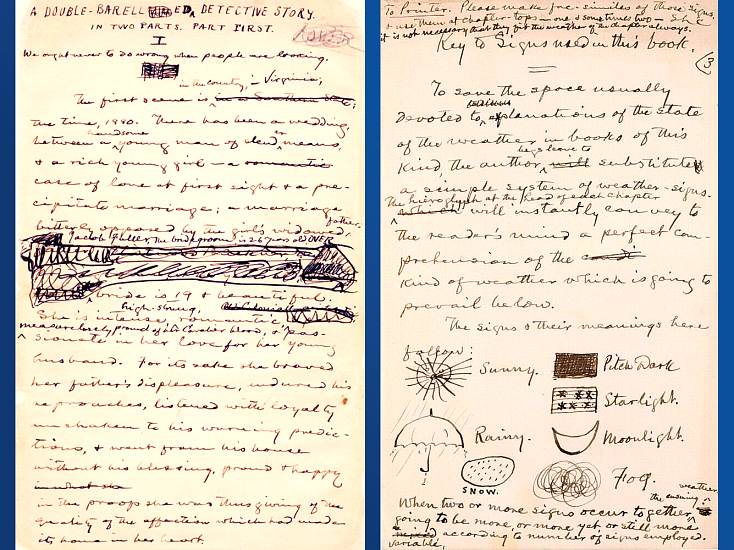 A DOUBLE-BARELLED DETECTIVE STORY.
IN TWO PARTS. PART FIRST.
I
We ought never to do wrong when people are looking.
in the country, — Virginia;
The first scene is
the time, 1880. There has been a wedding,
between a handsome young man of slender means,
& a rich young girl — a romantic
case of love at first sight & a pre-
cipitate marriage; a marriage
bitterly opposed by the girl's widowed father.
Jacob Fuller, the bridegroom is 26 years old OVER
bride is 19 & beautiful.
She is intense, high-strung, romantic,
immeasurably proud of her Cavalier blood, & pas-
sionate in her love for her young
husband. For its sake she braved
her father's displeasure, endured his
reproaches, listened with loyalty
unshaken to his warning predic-
tions, & went from his house
without his blessing, proud & happy
in the proofs she was thus giving of the
quality of the affection which had made
its home in her heart.
To Printer. Please make fac-similes of those signs,
& use them at chapter tops — one & sometimes two —
it is not necessary that they fit the weather of the chapter always.
Key to Signs used in this book.
3
To save the space usually
devoted to explanations of the state
of the weather in books of this
kind, the author begs leave to substitute
a simple system of weather-signs.
The hieroglyph at the head of each chapter
will instantly convey to
the reader's mind a perfect com-
prehension of the
kind of weather which is going to
prevail below.
The signs & their meanings here
follow:
Sunny. Pitch Dark
Starlight.
Rainy. Moonlight.
SNOW. Fog.
When two or more signs occur together, the ensuing weather is
going to be more, or more yet, or still more
variable, according to number of signs employed.